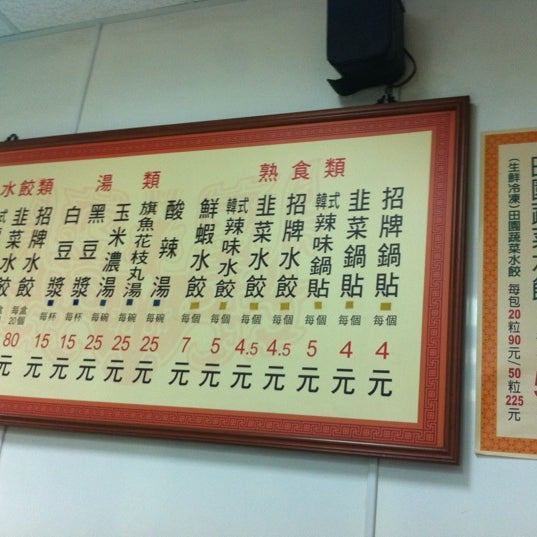 (生鮮冷凍)田園蔬菜水餃 每包20粒90元/50粒225元
熟食類
招牌鍋貼 每個 4 元
韭菜鍋貼 每個 4 元
韓式辣味鍋貼 每個 5 元
招牌水餃 每個 4.5 元
韭菜水餃 每個 4.5 元
韓式辣味水餃 每個 5 元
鮮蝦水餃 每個 7 元
湯類
酸辣湯 每碗 25 元
旗魚花枝丸湯 每碗 25 元
玉米濃湯 每碗 25 元
黑豆漿 每杯 15 元
白豆漿 每杯 15 元
水餃類
招牌水餃 每盒20個 80 元
韭菜水餃